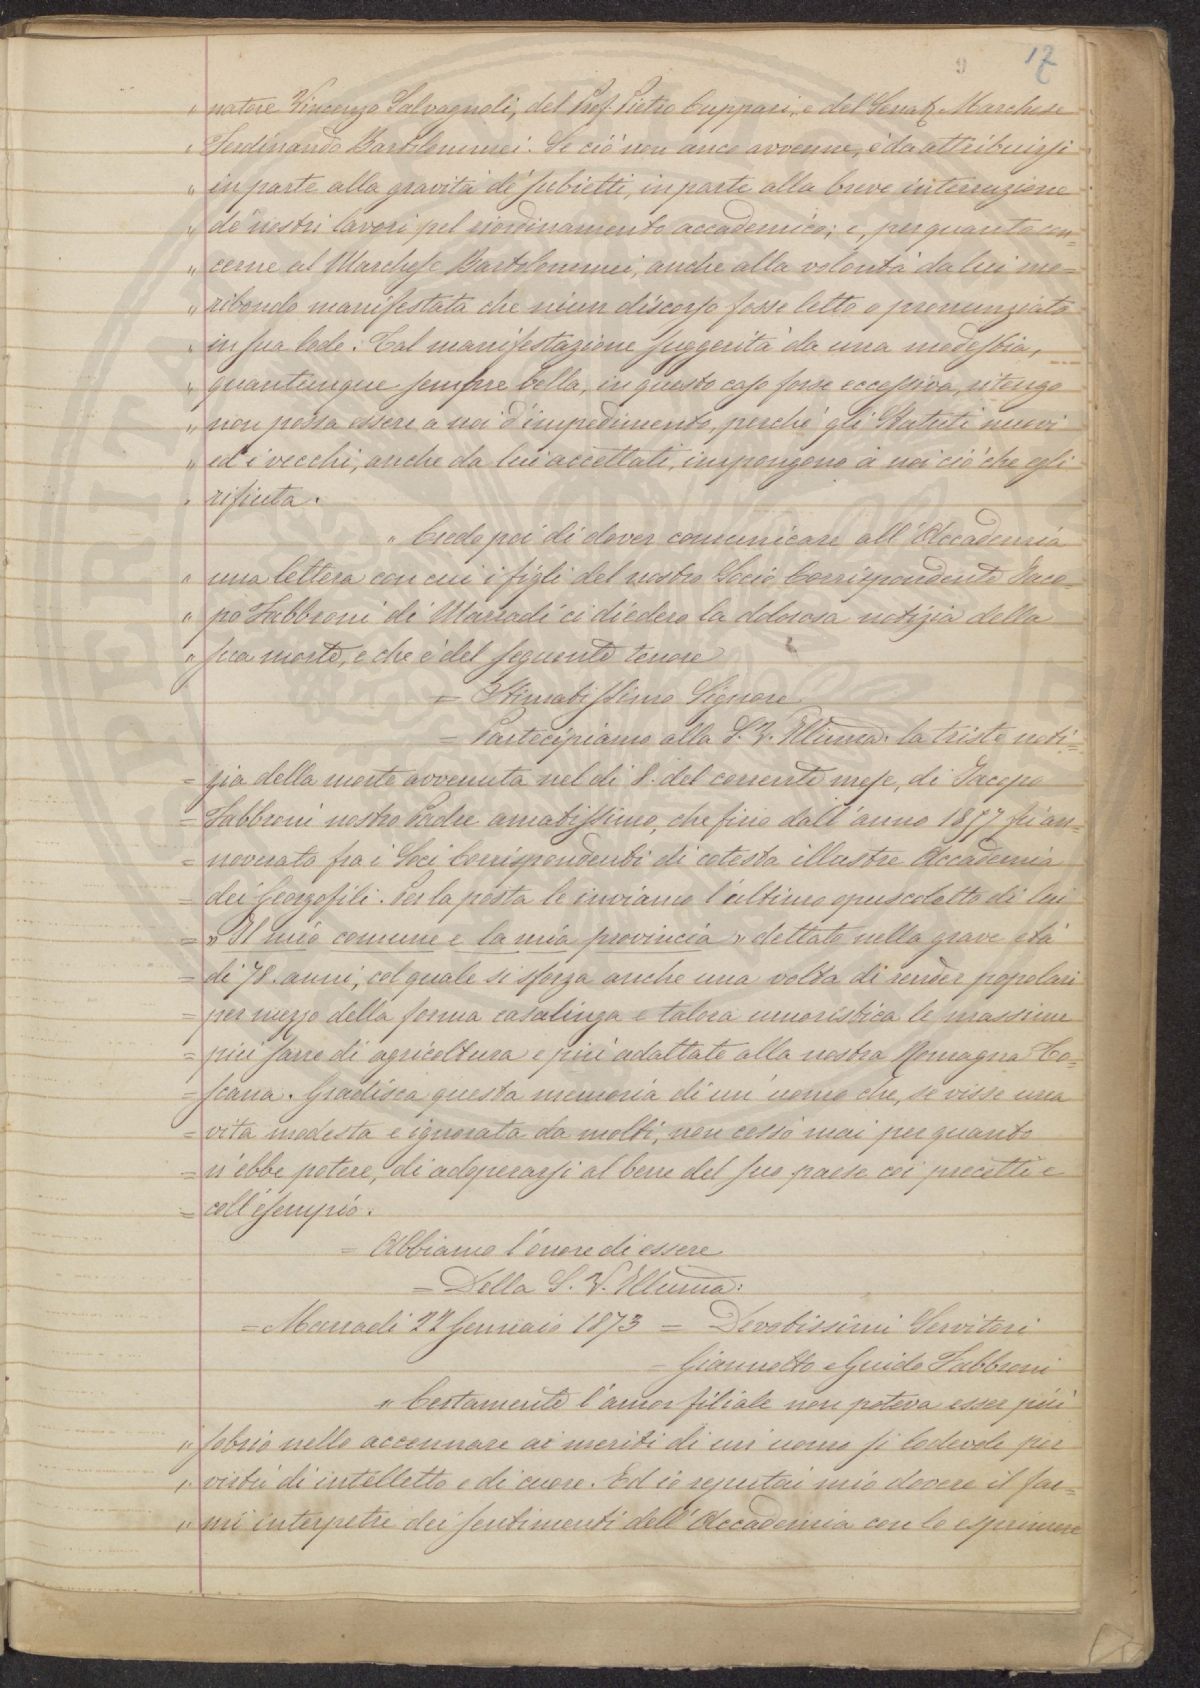 9 17
" natore Vincenzo Salvagnoli, del Prof. Pietro Cuppari, e del Senat. Marchese
" Ferdinando Bartolommei. Se ciò non anco avvenne, è da attribuirsi
" in parte alla gravità de' subietti, in parte alla breve interruzione
" de' nostri lavori pel riordinamento accademico; e, per quanto con-
" cerne al Marchese Bartolommei, anche alla volontà da lui mo=
" ribondo manifestata che niun discorso fosse letto o pronunziato
" in sua lode. Tal manifestazione suggerita da una modestia,
" quantunque sempre bella, in questo caso forse eccessiva, ritengo
" non possa essere a noi d'impedimento, perchè gli Statuti nuovi
" ed i vecchi, anche da lui accettati, impongono a noi ciò che egli
" rifiuta.
" Credo poi di dover comunicare all'Accademia
" una lettera con cui i figli del nostro Socio Corrispondente Jaco-
" po Fabbroni di Marradi ci diedero la dolorosa notizia della
" sua morte, e che è del seguente tenore
= Stimatissimo Signore
= Partecipiamo alla S. V. Illma. la triste noti=
= zia della morte avvenuta nel dì 8. del corrente mese, di Jacopo
= Fabbroni nostro Padre amatissimo, che fino dall'anno 1857 fù an=
= noverato fra i Soci Corrispondenti di cotesta illustre Accademia
= dei Georgofili. Per la posta le inviamo l'ultimo opuscoletto di lui
= " Il mio comune e la mia provincia " dettato nella grave età
= di 78. anni, col quale si sforza anche una volta di render popolari
= per mezzo della forma casalinga e talora umoristica le massime
= più sane di agricoltura e più adattate alla nostra Romagna To=
= scana. Gradisca questa memoria di un' uomo che, se visse una
= vita modesta e ignorata da molti, non cessò mai per quanto
= n'ebbe potere, di adoperarsi al bene del suo paese coi precetti e
= coll'esempio.
= Abbiamo l'onore di essere
= Della S. V. Illma:
= Marradi 22 Gennaio 1873 = Devotissimi Servitori
= Giannetto e Guido Fabbroni
" Certamente l'amor filiale non poteva esser più
" sobrio nello accennare ai meriti di un' uomo sì lodevole per
" virtù di intelletto e di cuore. Ed io reputai mio dovere il far=
" mi interpetre dei sentimenti dell'Accademia con lo esprimere